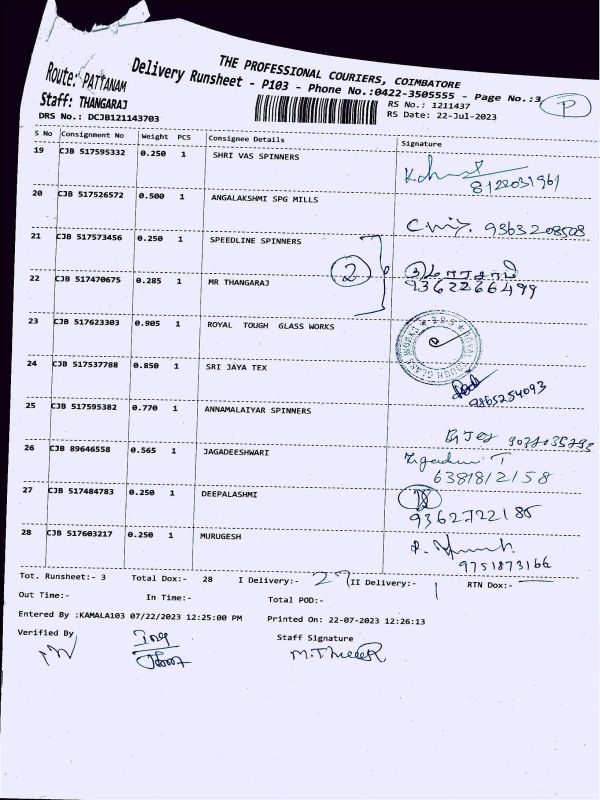 THE PROFESSIONAL COURIERS, COIMBATORE
Delivery Runsheet - P103 - Phone No.:0422-3505555 - Page No.:3
P
Route: PATTANAM
Staff: THANGARAJ
RS No.: 1211437
DRS No.: DCJB121143703
RS Date: 22-Jul-2023
S No Consignment No Weight PCS Consignee Details Signature
19 CJB 517595332 0.250 1 SHRI VAS SPINNERS
8122031961
20 CJB 517526572 0.500 1 ANGALAKSHMI SPG MILLS
9363208508
21 CJB 517573456 0.250 1 SPEEDLINE SPINNERS
2
22 CJB 517470675 0.285 1 MR THANGARAJ
9362266499
23 CJB 517623303 0.905 1 ROYAL TOUGH GLASS WORKS
24 CJB 517537788 0.850 1 SRI JAYA TEX
9865254093
25 CJB 517595382 0.770 1 ANNAMALAIYAR SPINNERS
26 CJB 89646558 0.565 1 JAGADEESHWARI
6381812158
27 CJB 517484783 0.250 1 DEEPALASHMI
9362722185
28 CJB 517603217 0.250 1 MURUGESH
9751873166
Tot. Runsheet:- 3 Total Dox:- 28 I Delivery:- 27 II Delivery:- 1 RTN Dox:-
Out Time:- In Time:- Total POD:-
Entered By :KAMALA103 07/22/2023 12:25:00 PM Printed On: 22-07-2023 12:26:13
Verified By Staff Signature